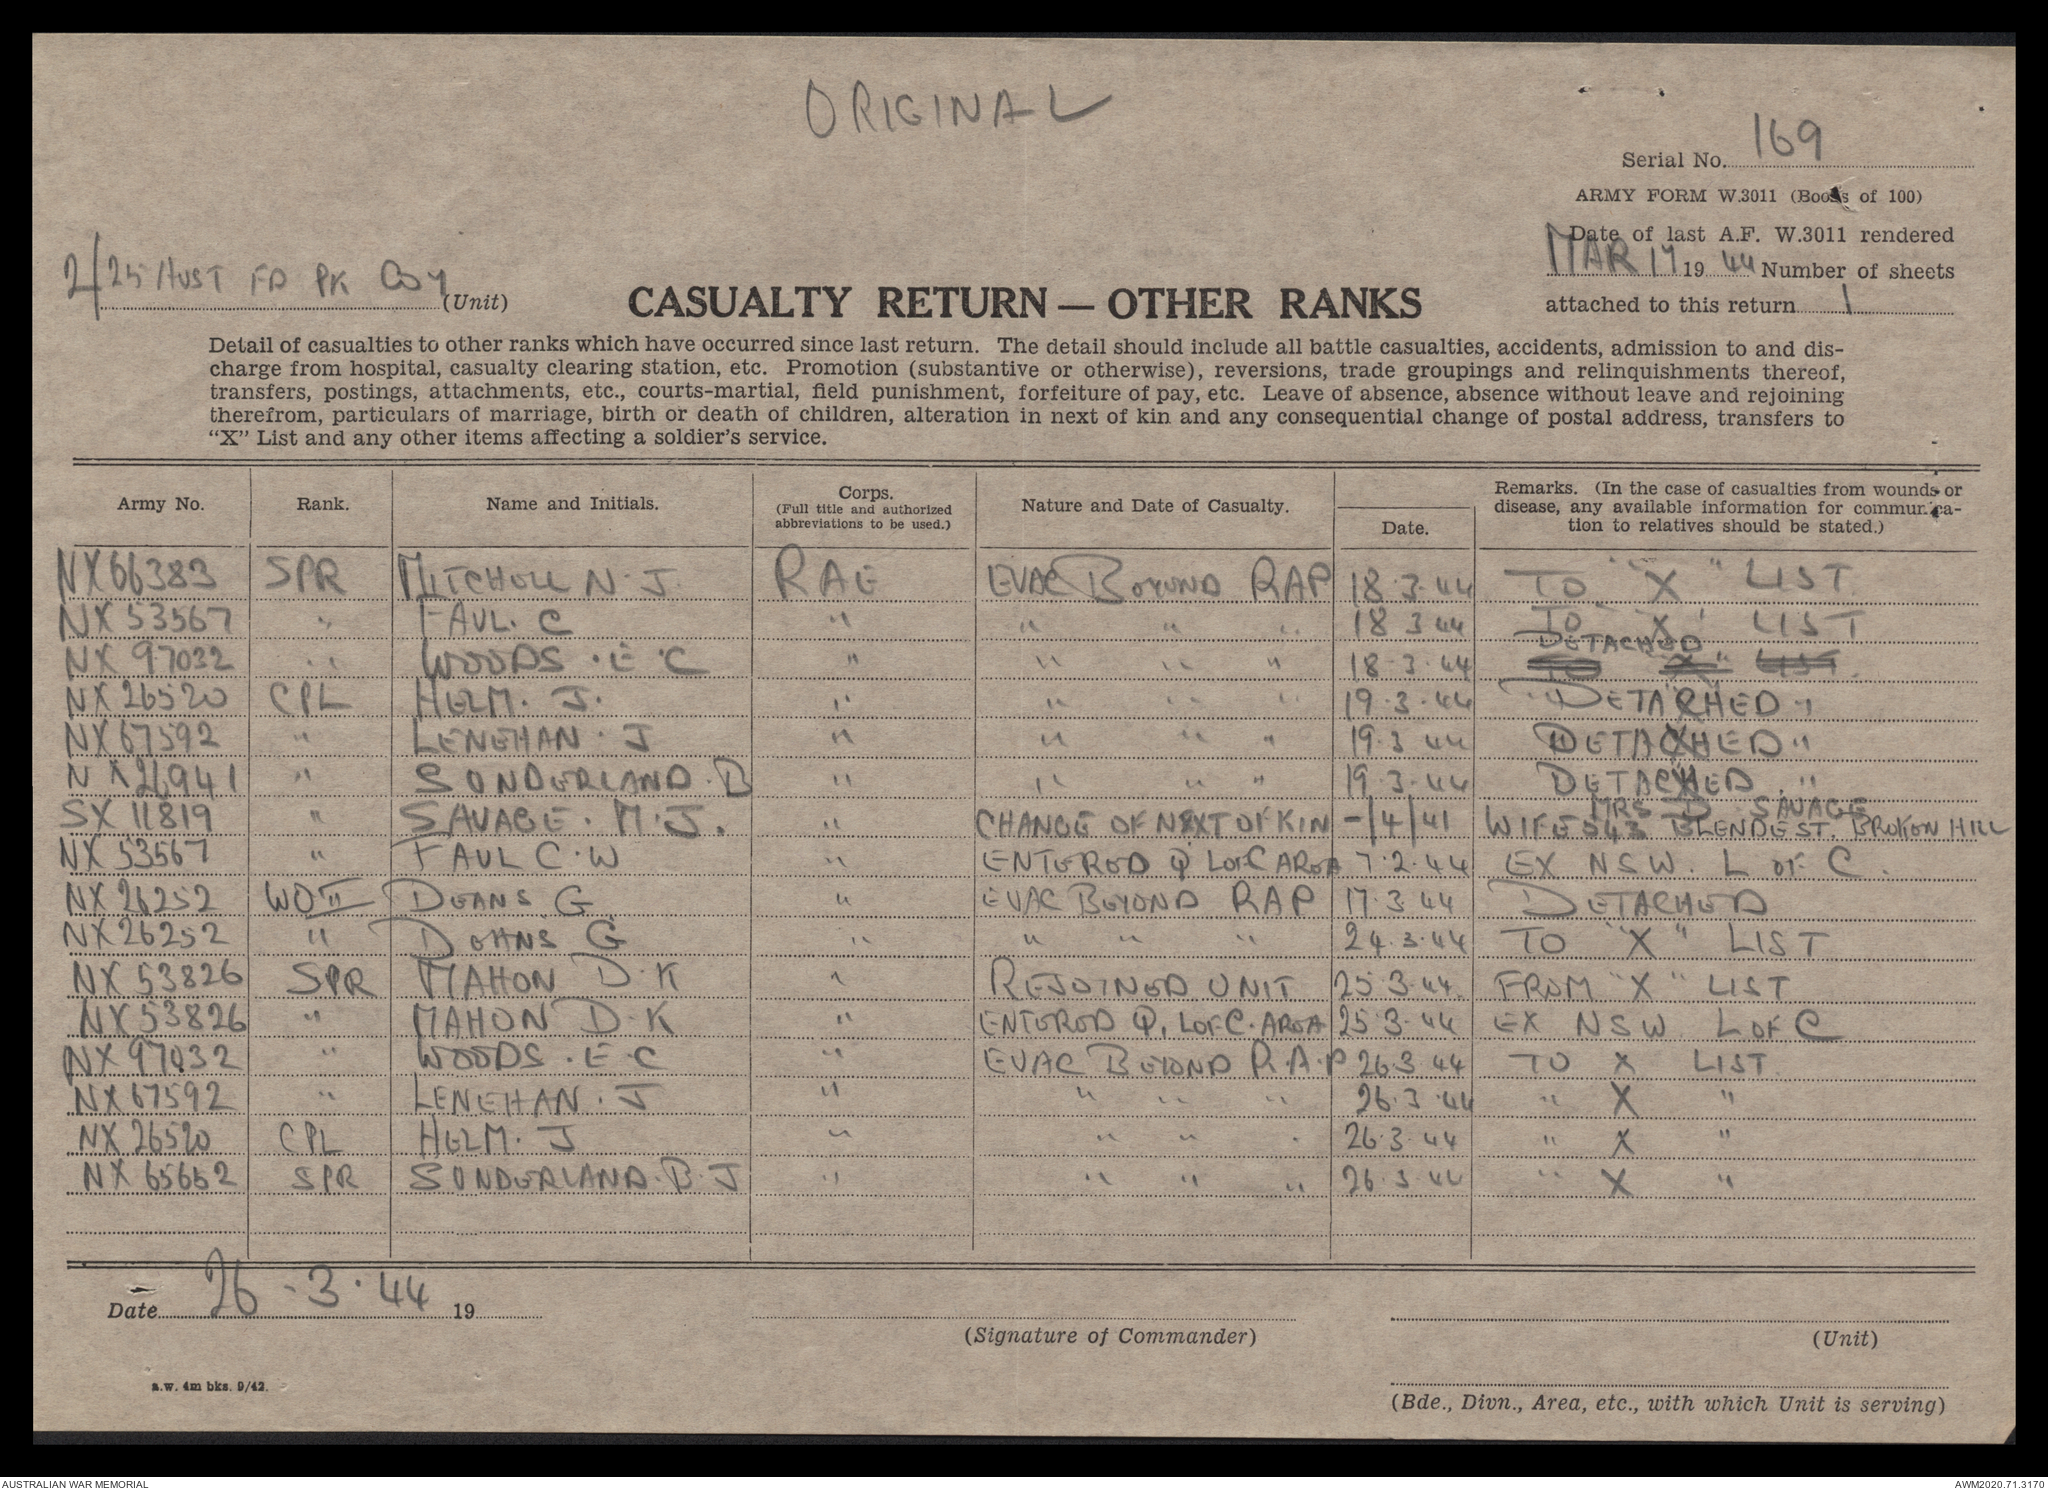 ORIGINAL
Serial No. 169
ARMY FORM W.3011 (Books of 100)
Date of last A.F. W.3011 rendered
MAR 19 1944 Number of sheets
attached to this return 1
2/25 AUST FD PK COY (Unit)
CASUALTY RETURN — OTHER RANKS
Detail of casualties to other ranks which have occurred since last return. The detail should include all battle casualties, accidents, admission to and dis-
charge from hospital, casualty clearing station, etc. Promotion (substantive or otherwise), reversions, trade groupings and relinquishments thereof,
transfers, postings, attachments, etc., courts-martial, field punishment, forfeiture of pay, etc. Leave of absence, absence without leave and rejoining
therefrom, particulars of marriage, birth or death of children, alteration in next of kin and any consequential change of postal address, transfers to
"X" List and any other items affecting a soldier's service.
Army No. Rank. Name and Initials. Corps. (Full title and authorized abbreviations to be used.) Nature and Date of Casualty. Date. Remarks. (In the case of casualties from wounds or disease, any available information for communica-tion to relatives should be stated.)
NX66383 SPR MITCHELL N. J. RAE EVAC BEYOND RAP 18.3.44 TO "X" LIST
NX 53567 " FAUL. C " " " " 18 3 44 TO "X" LIST
NX 97032 " WOODS. E. C " " " " 18.3.44 DETACHED TO "X" LIST
NX 26520 CPL HELM. J. " " " " 19.3.44 "DETACHED"
NX 67592 " LENEHAN. J " " " " 19.3 44 DETACHED "
NX 26941 " SUNDERLAND. B " " " " 19.3.44 DETACHED "
SX 11819 " SAVAGE. M. J. " CHANGE OF NEXT OF KIN -/4/41 MRS D. SAVAGE WIFE 543 BLENDE ST. BROKEN HILL
NX 53567 " FAUL C. W " ENTERED Q L OF C AREA 7.2.44 EX NSW. L OF C.
NX 26252 WO II DEANS G " EVAC BEYOND RAP 17.3 44 DETACHED
NX 26252 " DEANS G " " " " 24.3.44 TO "X" LIST
NX 53826 SPR MAHON D. K " REJOINED UNIT 25.3.44 FROM "X" LIST
NX 53826 " MAHON D. K " ENTERED Q. L OF C. AREA 25.3.44 EX NSW L OF C
NX 97032 " WOODS. E. C " EVAC BEYOND R.A.P 26.3 44 TO X LIST
NX 67592 " LENEHAN. J " " " " 26.3.44 " X "
NX 26520 CPL HELM. J " " " " 26.3.44 " X "
NX 65652 SPR SUNDERLAND. B. J " " " " 26.3.44 " X "
Date 26.3.44 19
(Signature of Commander)
(Unit)
a.w. 4m bks. 9/42.
(Bde., Divn., Area, etc., with which Unit is serving)
AUSTRALIAN WAR MEMORIAL
AWM2020.71.3170